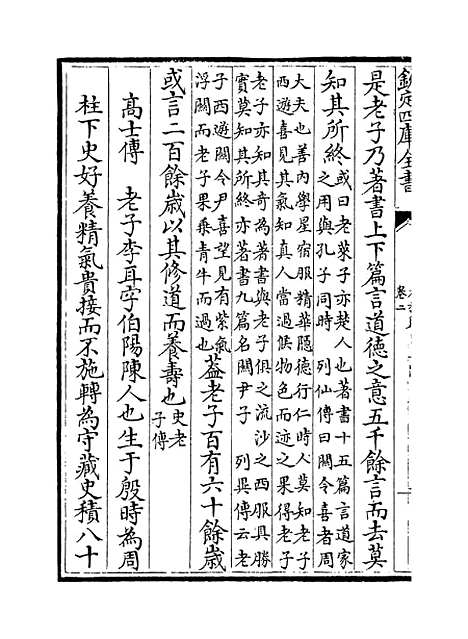 欽定四庫全書
卷二
是老子乃著書上下篇言道德之意五千餘言而去莫
知其所終
或曰老萊子亦楚人也著書十五篇言道家
之用與孔子同時 列仙傳曰關令喜者周
大夫也善内學星宿服精華隱德行仁時人莫知老子
西遊喜見其氣知真人當過候物色而迹之果得老子
老子亦知其奇為著書與老子俱之流沙之西服具勝
實莫知其所終亦著書九篇名關尹子 列異傳云老
子西遊關令尹喜望見有紫氣
浮關而老子果乘青牛而過也
蓋老子百有六十餘歲
或言二百餘歲以其修道而養壽也
史老
子傳
高士傳 老子李耳字伯陽陳人也生于殷時為周
柱下史好養精氣貴接而不施轉為守藏史積八十